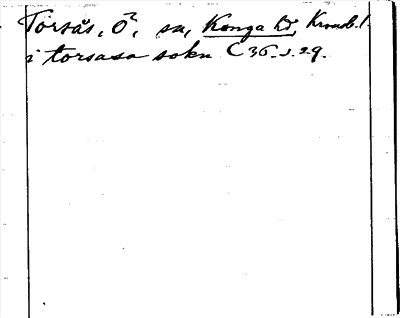 Torsås, Ö, sn, Konga hd, Kronob. l.
i torsasa sokn C 36 s. 29.